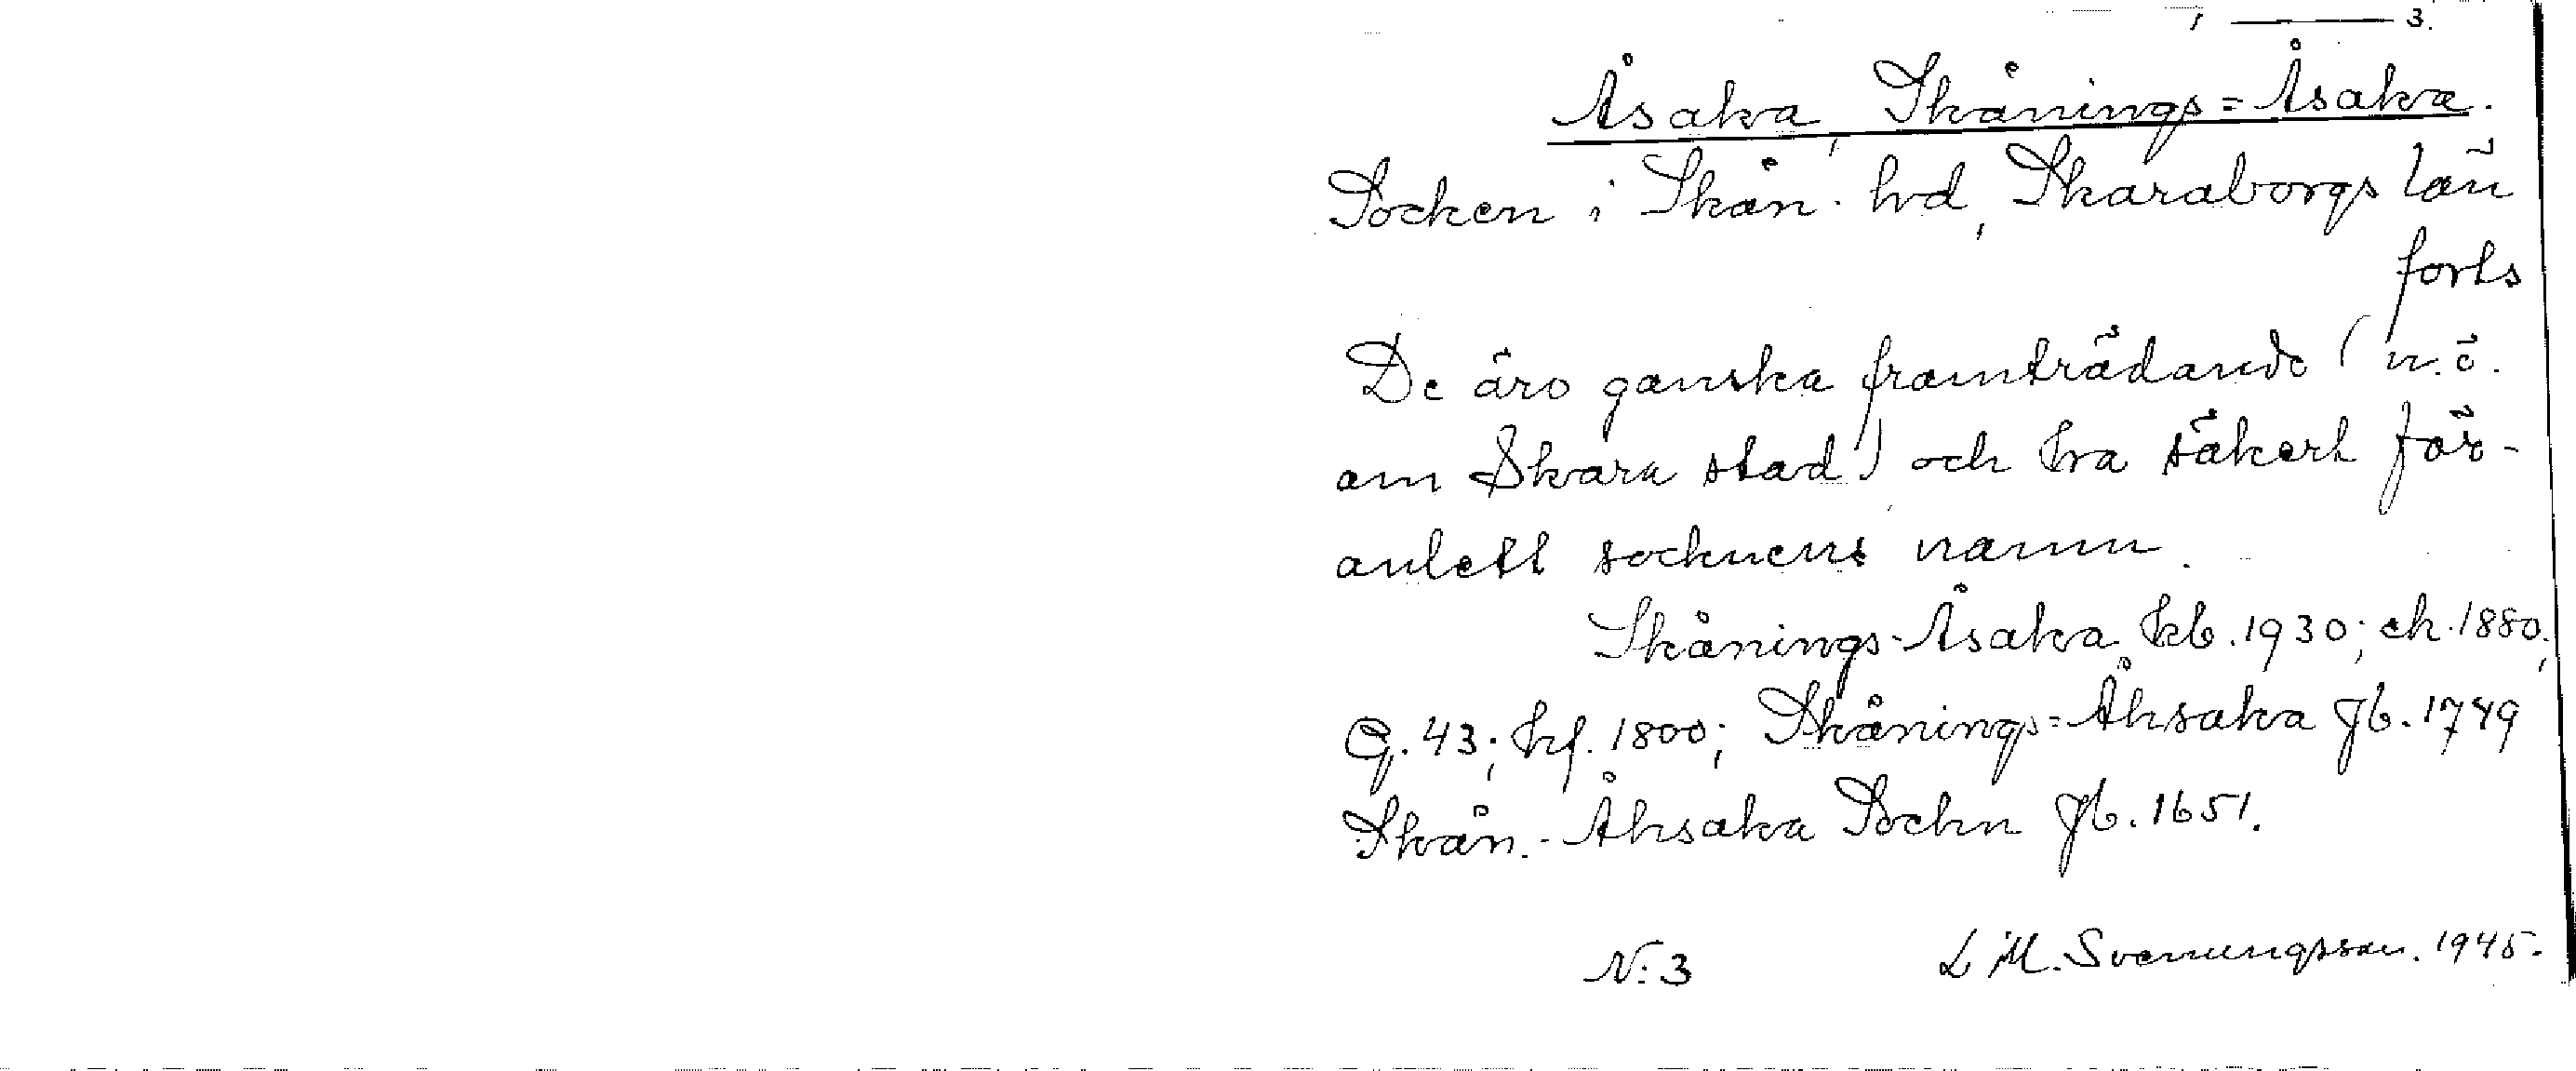 , ——— 3.
Åsaka, Skånings=Åsaka.
Socken i Skån. hd, Skaraborgs län
forts
De äro ganska framträdande (n.ö.
om Skara stad) och ha säkert för-
anlett socknens namn.
Skånings-Åsaka kb. 1930; ek. 1880;
G. 43; hf. 1800; Skånings=Åhsaka Jb. 1749
Skån.-Åhsaka Sochn Jb. 1651.
N:3 L M. Svenungsson. 1945.